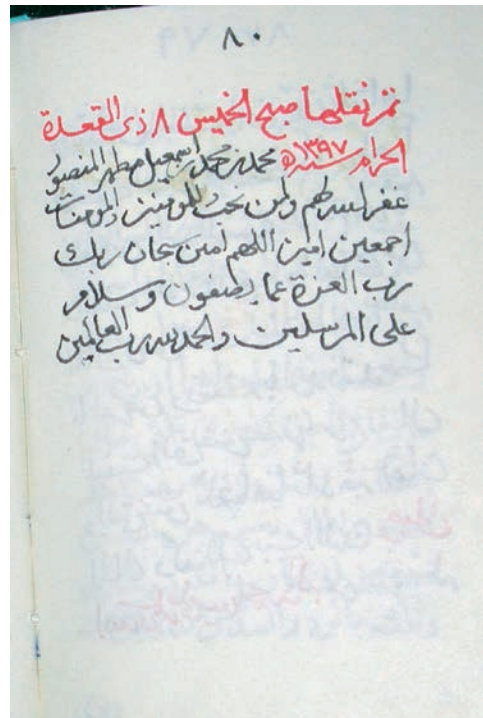 ٨٠
تم نقلها صبح الخميس ٨ ذي القعدة
الحرام سنة ١٣٩٧ه محمد بن محمد بن اسمعيل مطهر المنصور
غفر الله لهم ولمن بحث للمومنين والمومنات
اجمعين امين اللهم امين سبحان ربك
رب العزة عما يصفون وسلام
على المرسلين والحمد لله رب العالمين